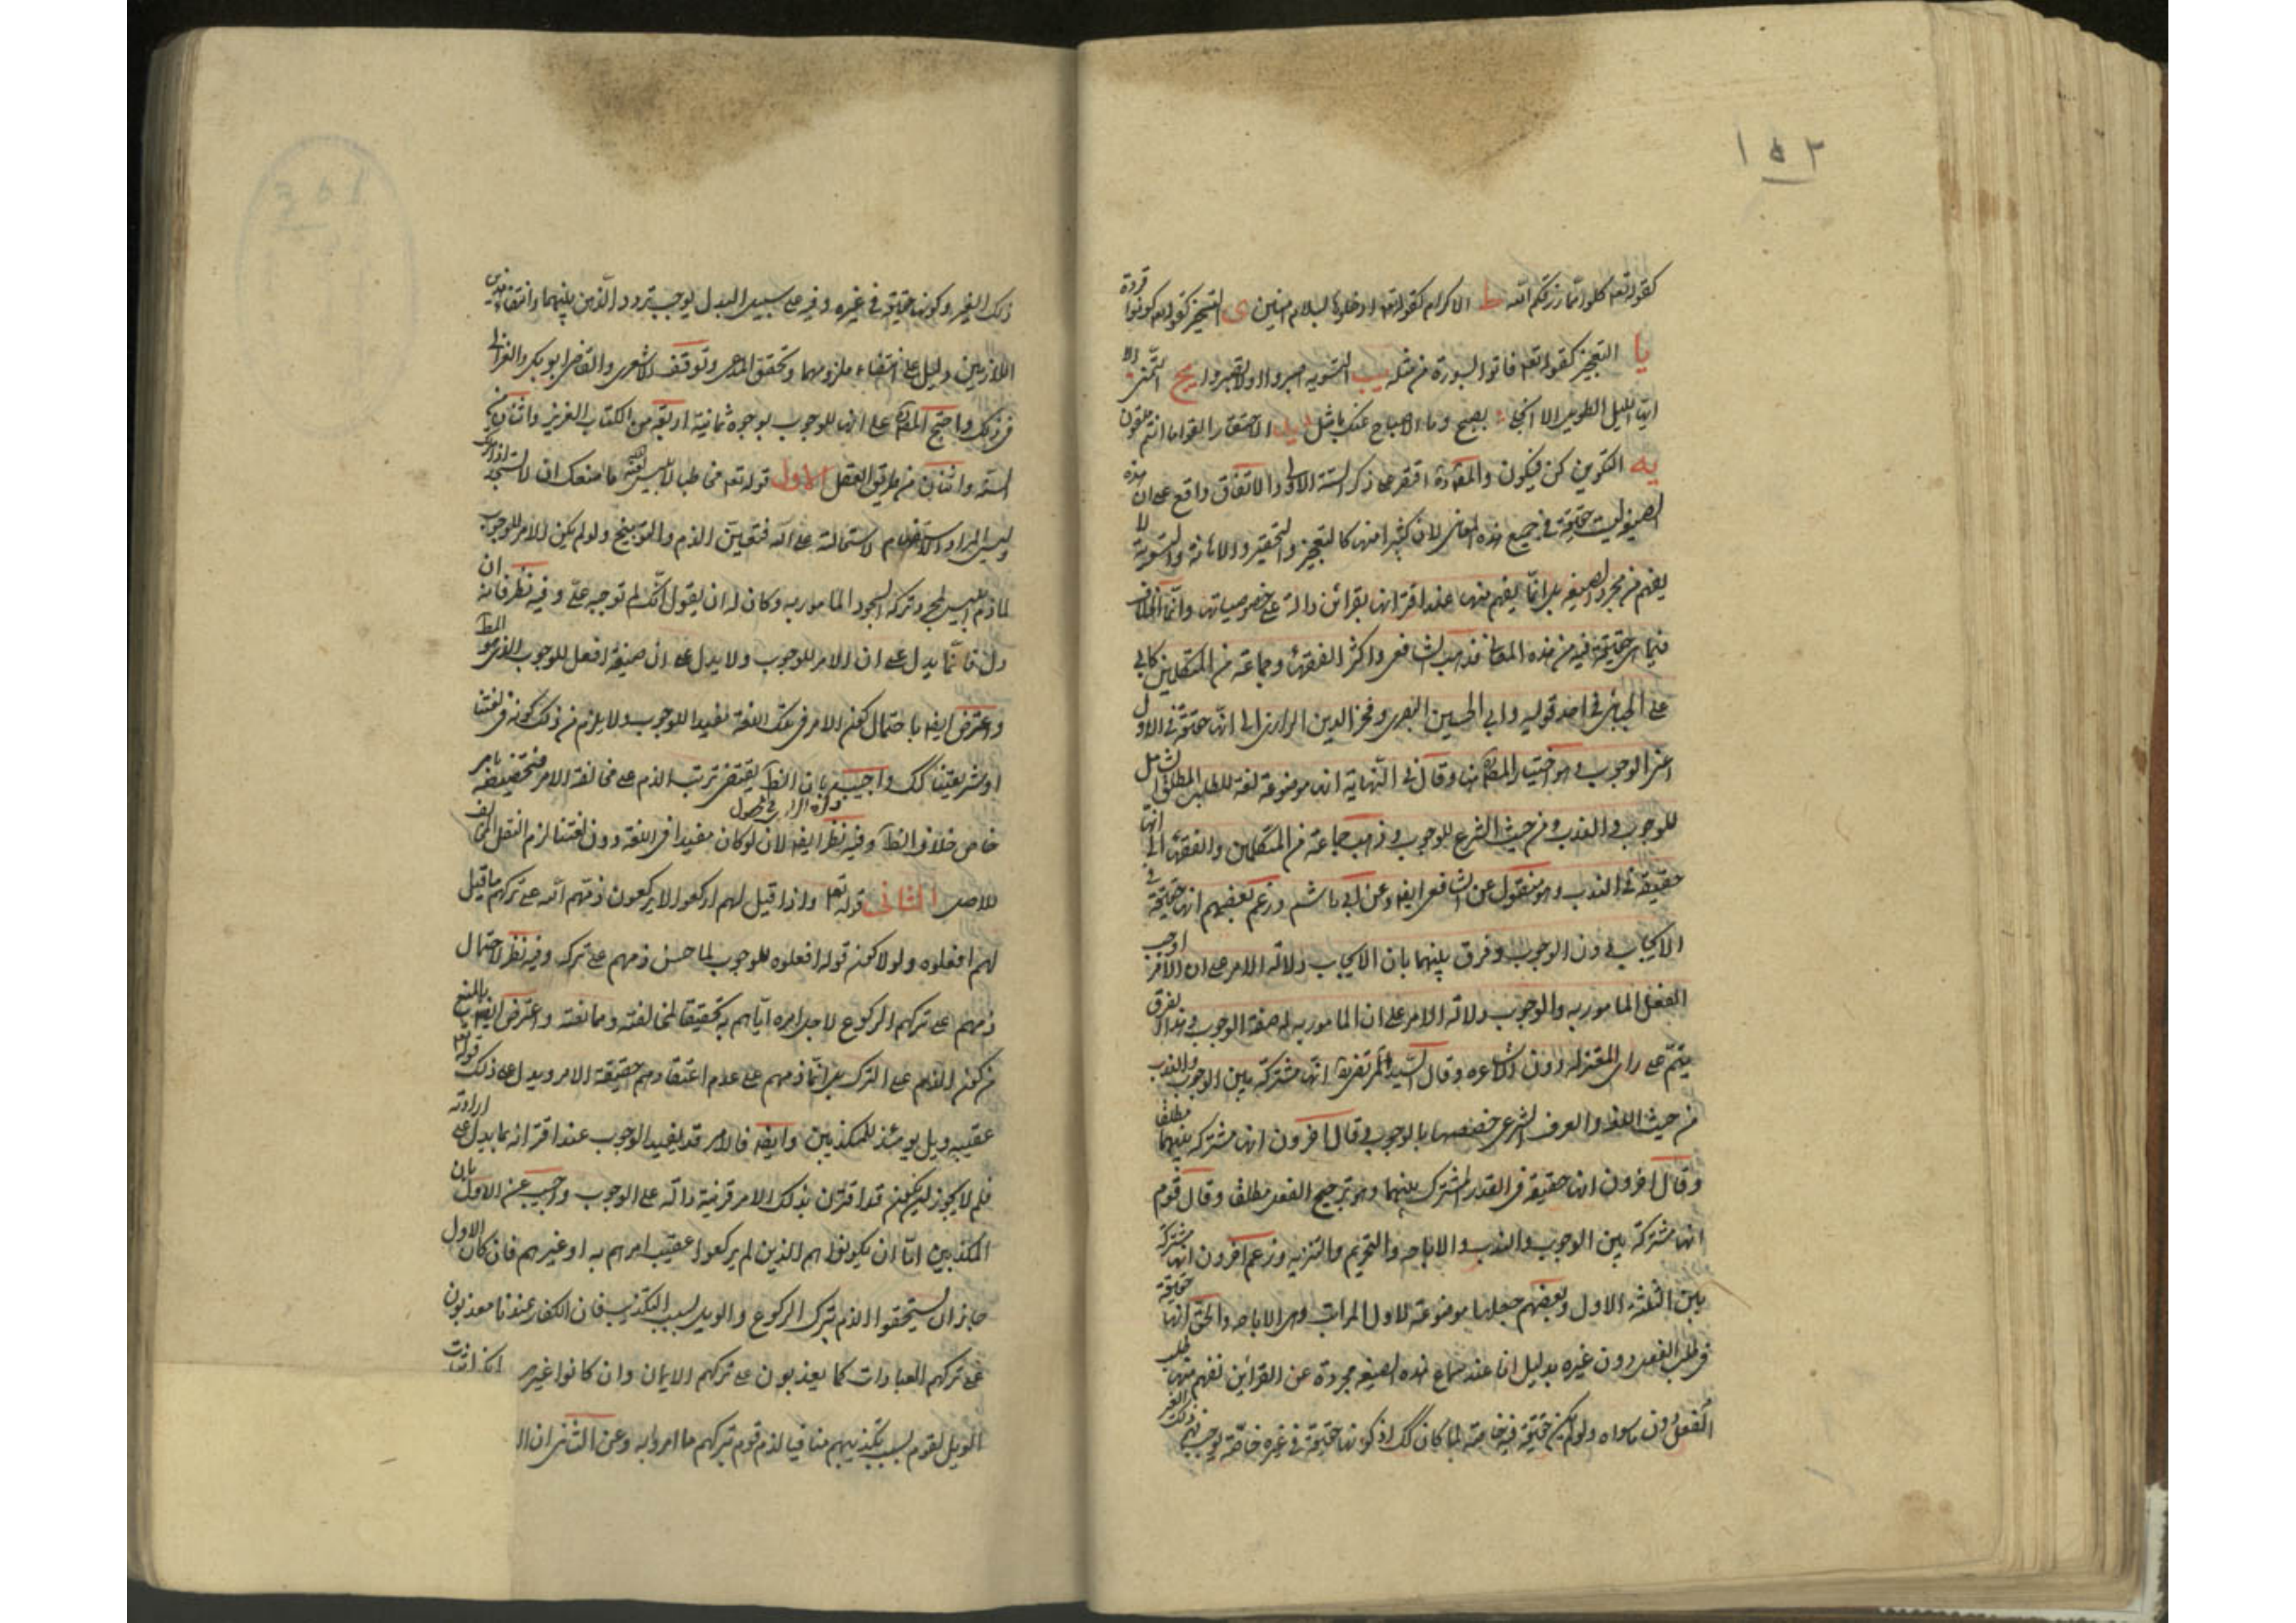 ١٥٢
كقوله تعه كلوا مما رزقكم الله ط الاكرام كقوله تعه ادخلوها بسلام امنين ى التسخير كقوله تعه كونوا قردة
يا التعجيز كقوله تعه فاتوا بسورة من مثله يب التسوية اصبروا اولا تصبروا يج التمنى الا
ايها الليل الطويل الا انجلى بصبح وما الاصباح منك بامثل يد الاحتقار القوا ما انتم ملقون
يه التكوين كن فيكون والمصَ ره اقتصر على ذكر الستة الاول والاتفاق واقع على ان هذه
الصيغة ليست حقيقة فى جميع هذه المعانى لان كثيرا منها كالتعجيز والتحقير والاهانة والتسوية لا
يفهم من مجرد الصيغة بل انما يفهم منها عند اقترانها بقرائن دالة على خصوصياتها وانما الخلاف
فيما هى حقيقة فيه من هذه المعانى فذهب الشافعى واكثر الفقهاء وجماعة من المتكلمين كابى
على الجبائى فى احد قوليه وابى الحسين البصرى وفخر الدين الرازى الى انها حقيقة فى الاول
اعنى الوجوب وهو اختيار المصَ هنا وقال فى النهاية انها موضوعة لغة للطلب المطلق الشامل
للوجوب والندب ومن حيث الشرع للوجوب وذهب جماعة من المتكلمين والفقهاء الى انها
حقيقة فى الندب وهو منقول عن الشافعى ايضه وعن ابى هاشم وزعم بعضهم انها حقيقة فى
الايجاب دون الوجوب وفرق بينهما بان الايجاب دلالة الامر على ان الآمر اوجب
الفعل المامور به والوجوب دلالة الامر على ان المامور به له صفة الوجوب وهذا الفرق
يتم على راى المعتزلة دون الاشاعره وقال السيد المرتضى ره انها مشتركة بين الوجوب والندب
من حيث اللغة والعرف الشرعى خصصها بالوجوب وقال اخرون انها مشتركة بينهما مطلقا
وقال اخرون انها حقيقة فى القدر المشترك بينهما وهو ترجيح الفعل مطلقا وقال قوم
انها مشتركة بين الوجوب والندب والاباحه والتحريم والتنزيه وزعم اخرون انها مشتركة
بين الثلثة الاول وبعضهم جعلها موضوعة لاول المراتب وهى الاباحه والحق انها حقيقة
فى طلب الفعل دون غيره بدليل انا عند سماع هذه الصيغة مجردة عن القراين نفهم منها طلب
الفعل دون ما سواه ولو لم يكن حقيقة فيه خاصة لما كان كك اذ كونها حقيقة فى غيره خاصة يوجب فهم ذلك الغير
ذلك الغير وكونها حقيقة فى غيره وفيه على سبيل البدل يوجب تردد الذهن بينهما وانتفاء هذين
اللازمين دليل على انتفاء ملزومهما وتحقق المدعى وتوقف الاشعرى والقاضى ابو بكر والغزالى
فى ذلك واحتج المصَ على انها للوجوب بوجوه ثمانية اربعة من الكتاب العزيز واثنان من
السنة واثنان من طريق العقل الاول قوله تعه مخاطبا لابليس لعنه الله ما منعك ان لا تسجد اذ امرتك
وليس المراد الاستفهام لاستحالته على الله فتعين الذم والتوبيخ ولو لم يكن الامر للوجوب
لما ذم ابليس لمجرد تركه السجود المامور به وكان له ان يقول انك لم توجبه على وفيه نظر فانه ان
دل فانما يدل على ان الامر للوجوب ولا يدل على ان صيغة افعل للوجوب الذى هو المط
واعترض ايضه باحتمال كون الامر فى تلك اللغة مفيدا للوجوب ولا يلزم من ذلك كونه فى لغتنا
او شريعتنا كك واجيب بان الظَ يقتضى ترتب الذم على مخالفة الامر فتخصيصه بامر
خاص خلاف الظَ وفيه نظر ايضه لانه لو كان مفيدا فى اللغة دون لغتنا لزم النقل المخالف
للاصل الثانى قوله تعه واذا قيل لهم اركعوا لا يركعون ذمهم الله على تركهم ما قيل
لهم افعلوه ولولا كون قوله افعلوه للوجوب لما حسن ذمهم على تركه وفيه نظر لاحتمال
ذمهم على تركهم الركوع لاجل امره اياهم به تحقيقا لمخالفته وممانعته واعترض ايضه بالمنع
من كون الذم على الترك بل انما ذمهم على عدم اعتقادهم حقيقة الامر ويدل على ذلك قوله تعه
عقيبه ويل يومئذ للمكذبين وايضه فالامر قد يفيد الوجوب عند اقترانه بما يدل على ارادته
فلم لا يجوز ان يكون قد اقترن بذلك الامر قرينة دالة على الوجوب واجيب عن الاول بان
المكذبين اما ان يكونوا هم الذين لم يركعوا عقيب امرهم به او غيرهم فان كان الاول
جاز ان يستحقوا الذم بترك الركوع والويل بسبب التكذيب فان الكفار عندنا معذبون
على تركهم العبادات كما يعذبون على تركهم الايمان وان كانوا غيرهم
الويل لقوم بسبب تكذيبهم منافيا لذم قوم بتركهم ما امروا به وعن الثانى ان